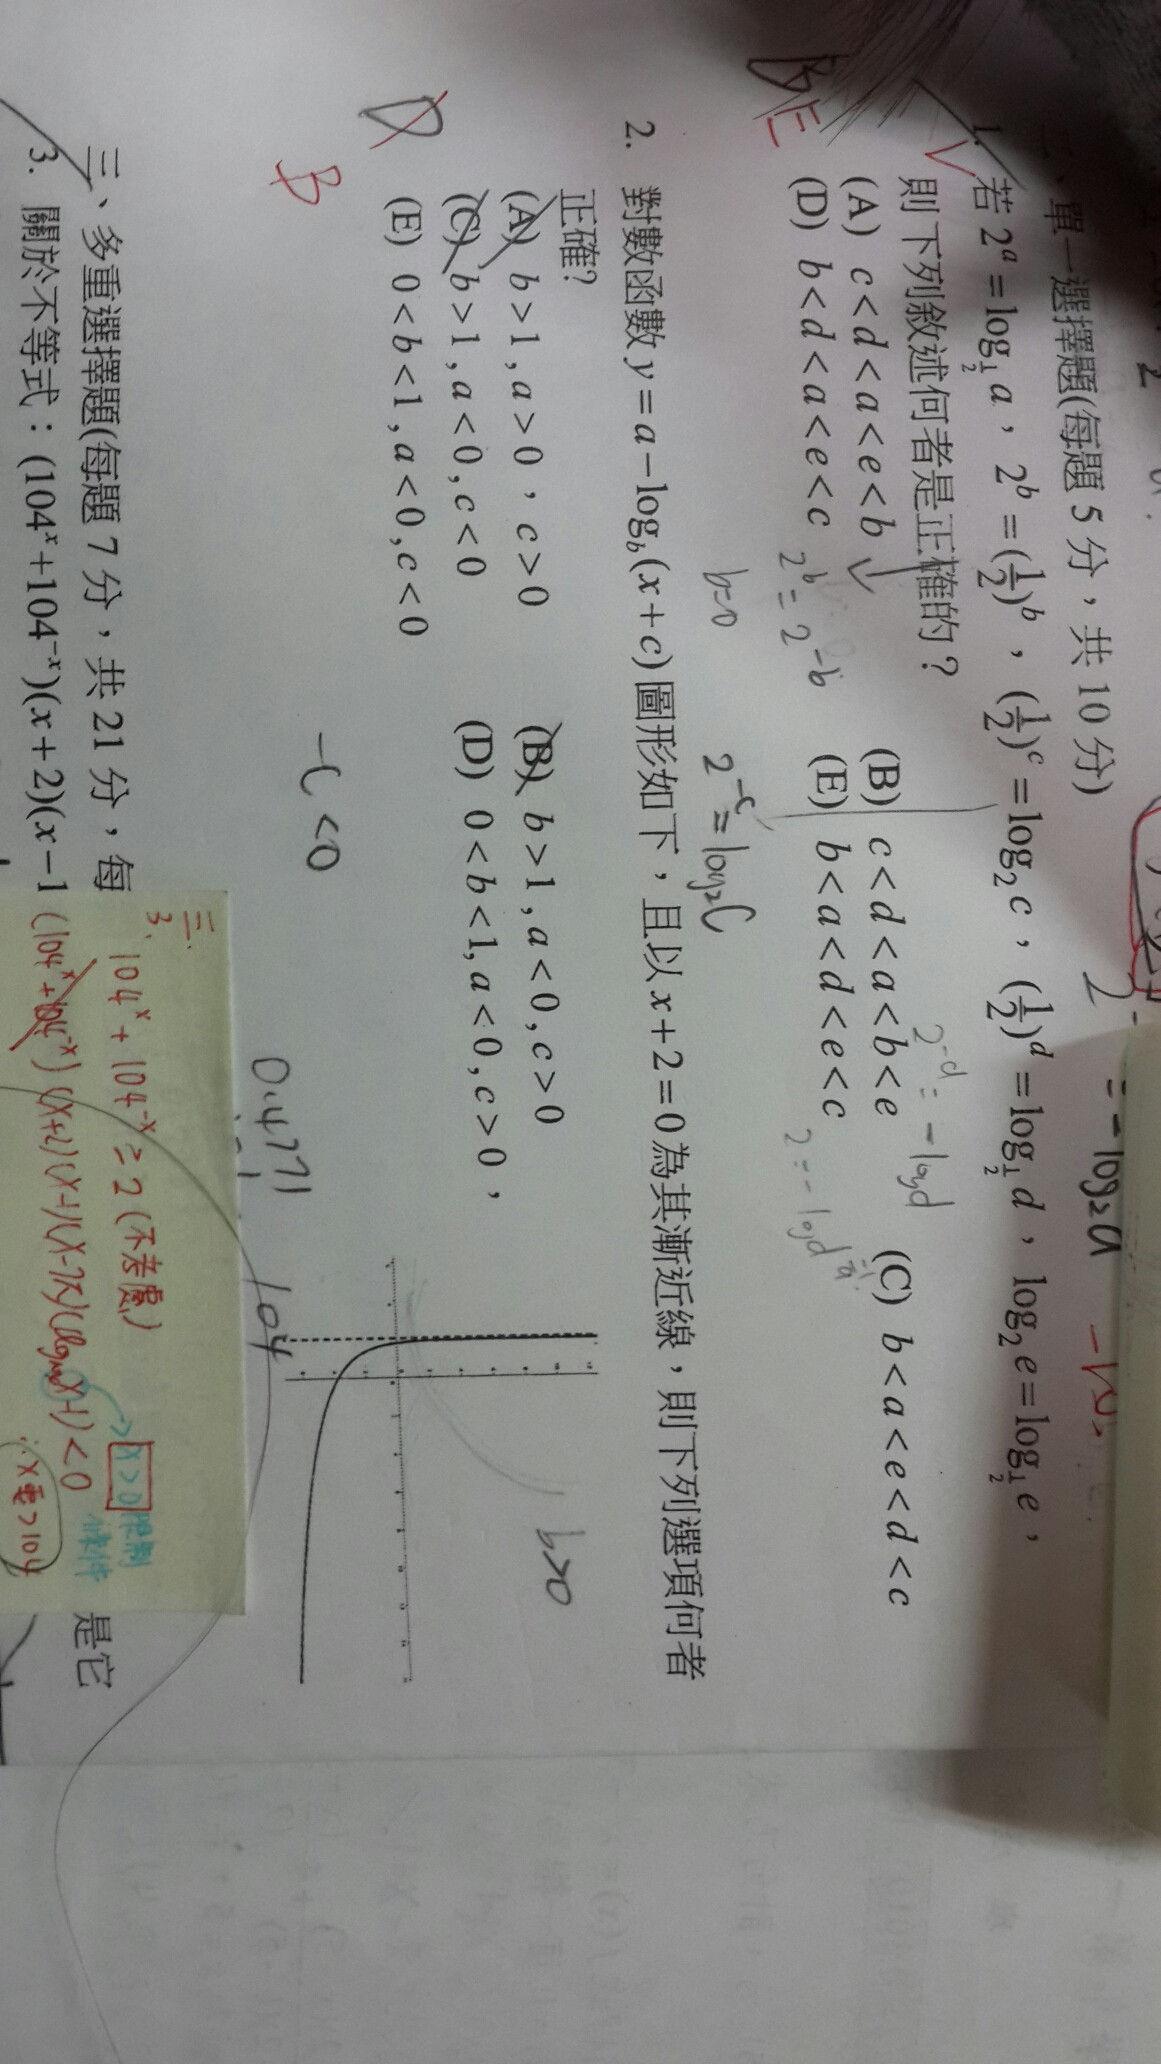 二、單一選擇題(每題 5 分，共 10 分)
BE
1. 若 2^a = log_{1/2} a，2^b = (1/2)^b，(1/2)^c = log_2 c，(1/2)^d = log_{1/2} d，log_2 e = log_{1/2} e，
則下列敘述何者是正確的？
(A) c < d < a < e < b (B) c < d < a < b < e (C) b < a < e < d < c
(D) b < d < a < e < c (E) b < a < d < e < c
= -log₂a
2^-d = -log d
2^b = 2^-b
b=0
2^-c = log₂C
D
B
2. 對數函數 y = a − log_b (x + c) 圖形如下，且以 x + 2 = 0 為其漸近線，則下列選項何者
正確?
(A) b > 1, a > 0，c > 0 (B) b > 1, a < 0, c > 0
(C) b > 1, a < 0, c < 0 (D) 0 < b < 1, a < 0, c > 0，
(E) 0 < b < 1, a < 0, c < 0
b>0
-C<0
0.4771
104
三、多重選擇題(每題 7 分，共 21 分，每
是它
3. 關於不等式：(104^x + 104^{-x})(x + 2)(x − 1
三.
3. 104^x + 104^-x ≥ 2 (不考慮)
x>0 限制條件
∴x要>104